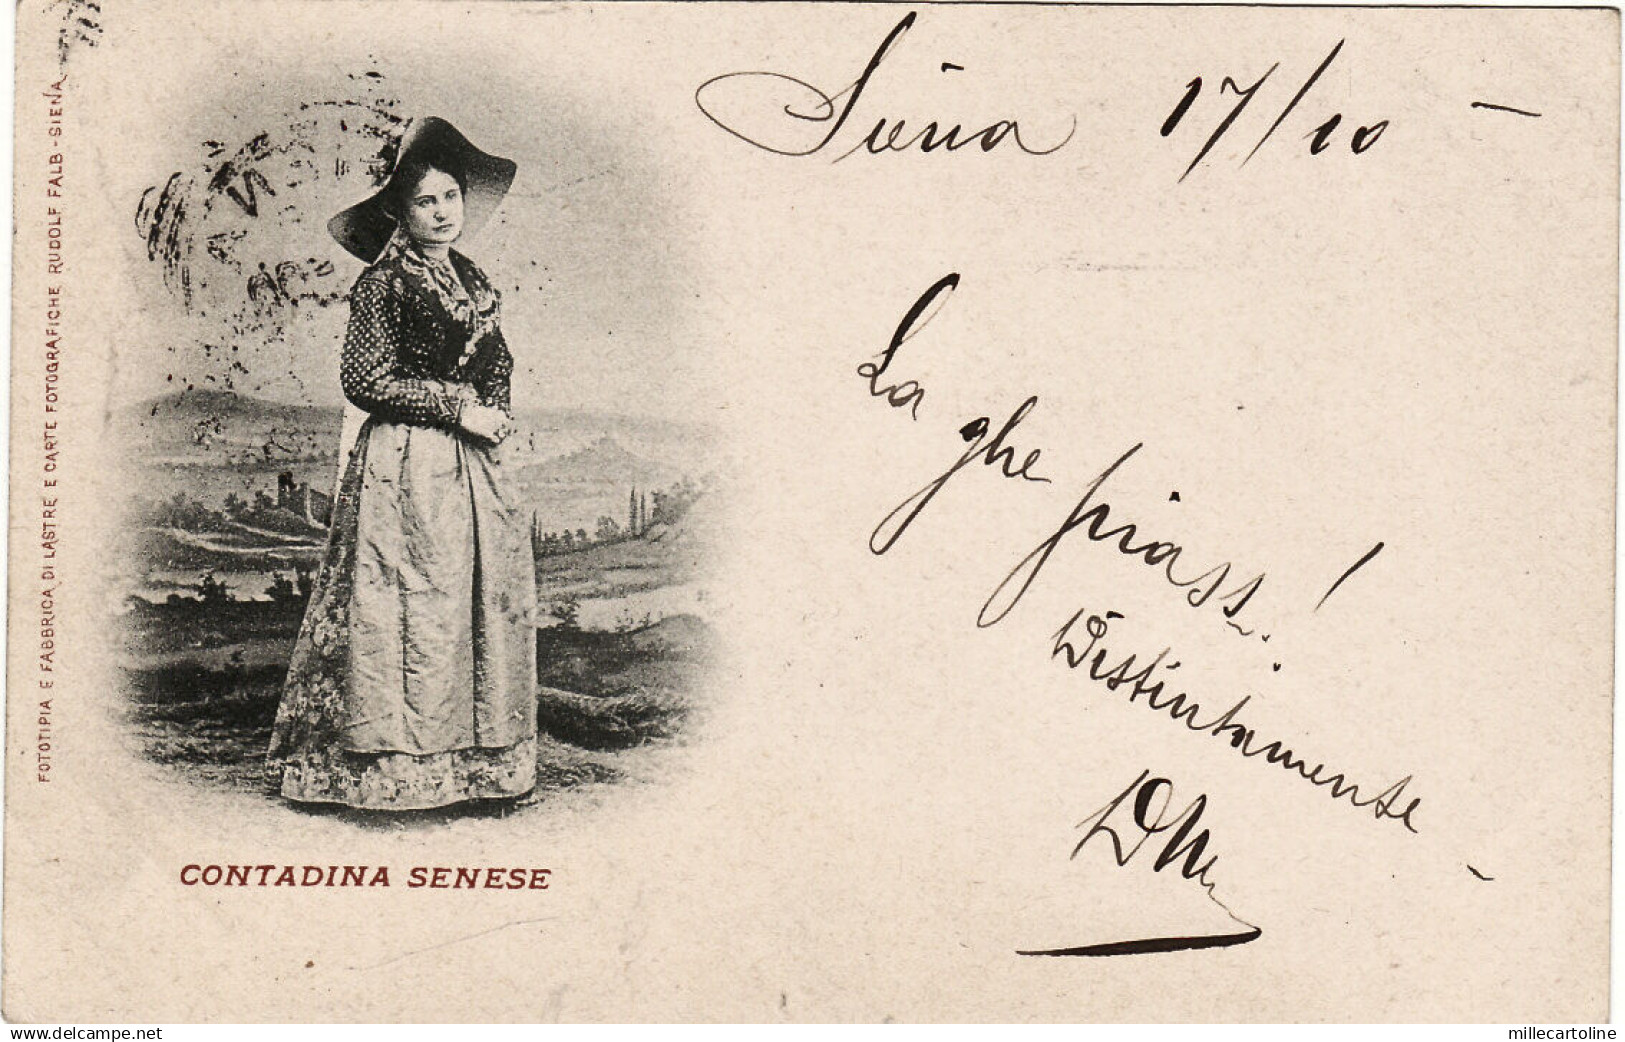 Siena 17/10 –
La ghe piass!
Distintamente –
FOTOTIPIA E FABBRICA DI LASTRE E CARTE FOTOGRAFICHE RUDOLF FALB - SIENA
CONTADINA SENESE
www.delcampe.net
millecartoline